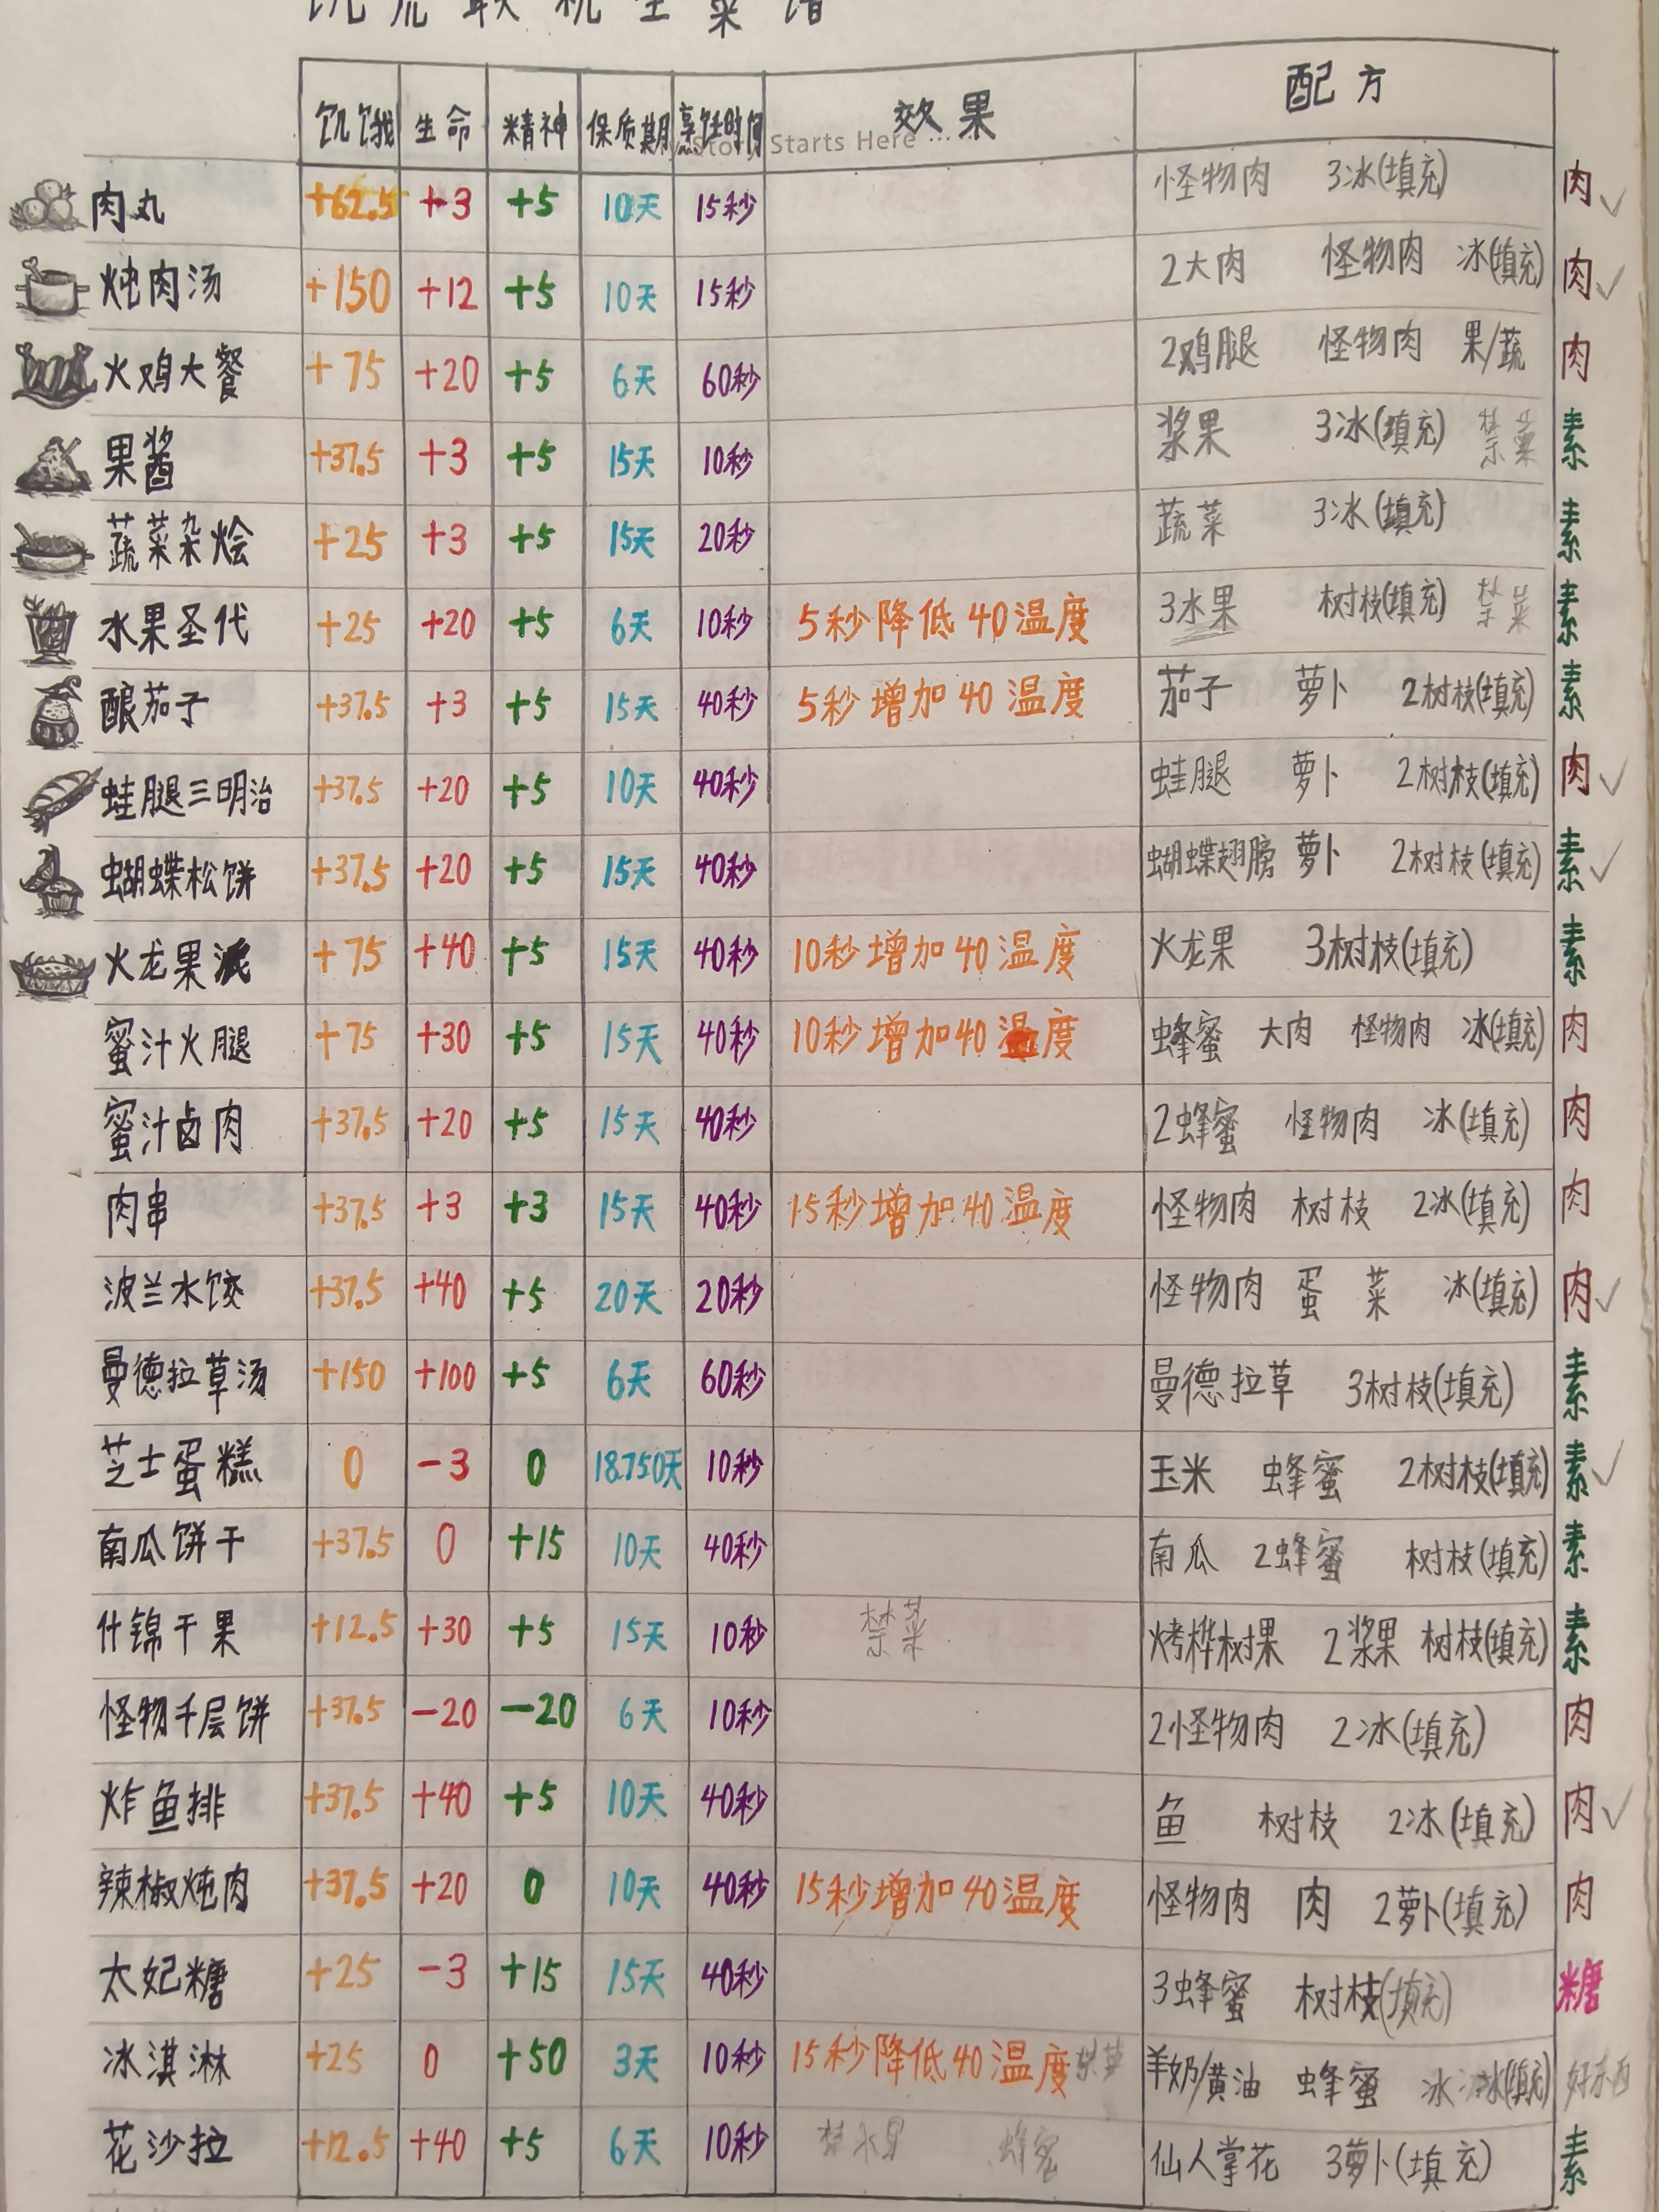 饥荒联机全菜谱
饥饿 生命 精神 保质期 烹饪时间 效果 配方
My Story Starts Here ...
肉丸 +62.5 +3 +5 10天 15秒 怪物肉 3冰(填充) 肉✓
炖肉汤 +150 +12 +5 10天 15秒 2大肉 怪物肉 冰(填充) 肉✓
火鸡大餐 +75 +20 +5 6天 60秒 2鸡腿 怪物肉 果/蔬 肉
果酱 +37.5 +3 +5 15天 10秒 浆果 3冰(填充) 禁菜 素
蔬菜杂烩 +25 +3 +5 15天 20秒 蔬菜 3冰(填充) 素
水果圣代 +25 +20 +5 6天 10秒 5秒降低40温度 3水果 树枝(填充) 禁菜 素
酿茄子 +37.5 +3 +5 15天 40秒 5秒增加40温度 茄子 萝卜 2树枝(填充) 素
蛙腿三明治 +37.5 +20 +5 10天 40秒 蛙腿 萝卜 2树枝(填充) 肉✓
蝴蝶松饼 +37.5 +20 +5 15天 40秒 蝴蝶翅膀 萝卜 2树枝(填充) 素✓
火龙果派 +75 +40 +5 15天 40秒 10秒增加40温度 火龙果 3树枝(填充) 素
蜜汁火腿 +75 +30 +5 15天 40秒 10秒增加40温度 蜂蜜 大肉 怪物肉 冰(填充) 肉
蜜汁卤肉 +37.5 +20 +5 15天 40秒 2蜂蜜 怪物肉 冰(填充) 肉
肉串 +37.5 +3 +3 15天 40秒 15秒增加40温度 怪物肉 树枝 2冰(填充) 肉
波兰水饺 +37.5 +40 +5 20天 20秒 怪物肉 蛋 菜 冰(填充) 肉✓
曼德拉草汤 +150 +100 +5 6天 60秒 曼德拉草 3树枝(填充) 素
芝士蛋糕 0 -3 0 18.750天 10秒 玉米 蜂蜜 2树枝(填充) 素✓
南瓜饼干 +37.5 0 +15 10天 40秒 南瓜 2蜂蜜 树枝(填充) 素
什锦干果 +12.5 +30 +5 15天 10秒 禁菜 烤桦树果 2浆果 树枝(填充) 素
怪物千层饼 +37.5 -20 -20 6天 10秒 2怪物肉 2冰(填充) 肉
炸鱼排 +37.5 +40 +5 10天 40秒 鱼 树枝 2冰(填充) 肉✓
辣椒炖肉 +37.5 +20 0 10天 40秒 15秒增加40温度 怪物肉 肉 2萝卜(填充) 肉
太妃糖 +25 -3 +15 15天 40秒 3蜂蜜 树枝(填充) 糖
冰淇淋 +25 0 +50 3天 10秒 15秒降低40温度 禁菜 羊奶/黄油 蜂蜜 冰 冰(填充) 好东西
花沙拉 +12.5 +40 +5 6天 10秒 禁水果 蜂蜜 仙人掌花 3萝卜(填充) 素